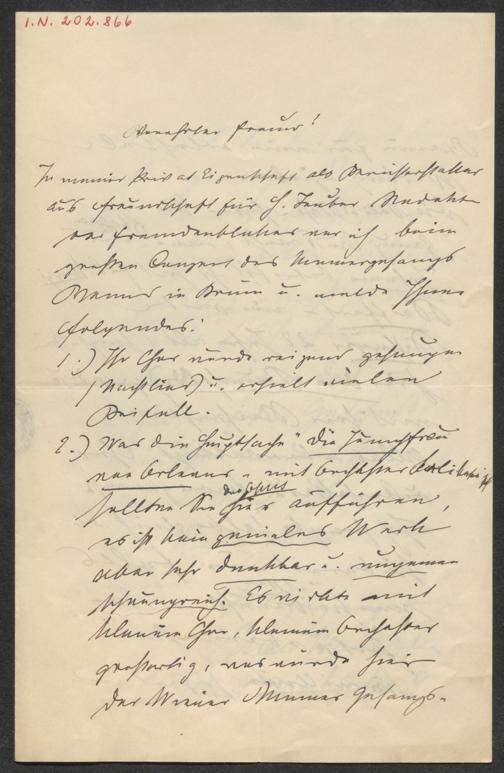 I.N. 202.866
Verehrter Freund!
In meiner Privat Eigenschaft als Berichterstatter
aus Freundschaft für H. Teuber Redakt
des Fremdenblattes war ich beim
großen Conzert des Männergesangs
in Brünn u. melde Ihnen
folgendes:
1.) Ihr Chor wurde reizend gesungen
(Nachtlied) u. erhielt vielen
Beifall.
2.) Was die Hauptsache "die Jungfrau
von Orleans" mit Orchester
sollten Sie hier aufführen,
das Opus
es ist kein geniales Werk
aber sehr dankbar u. ungemein
schwungreich. Es wirkte mit
kleinem Chor, kleinem Orchester
großartig, was würde hier
der Wiener Männer Gesangs-